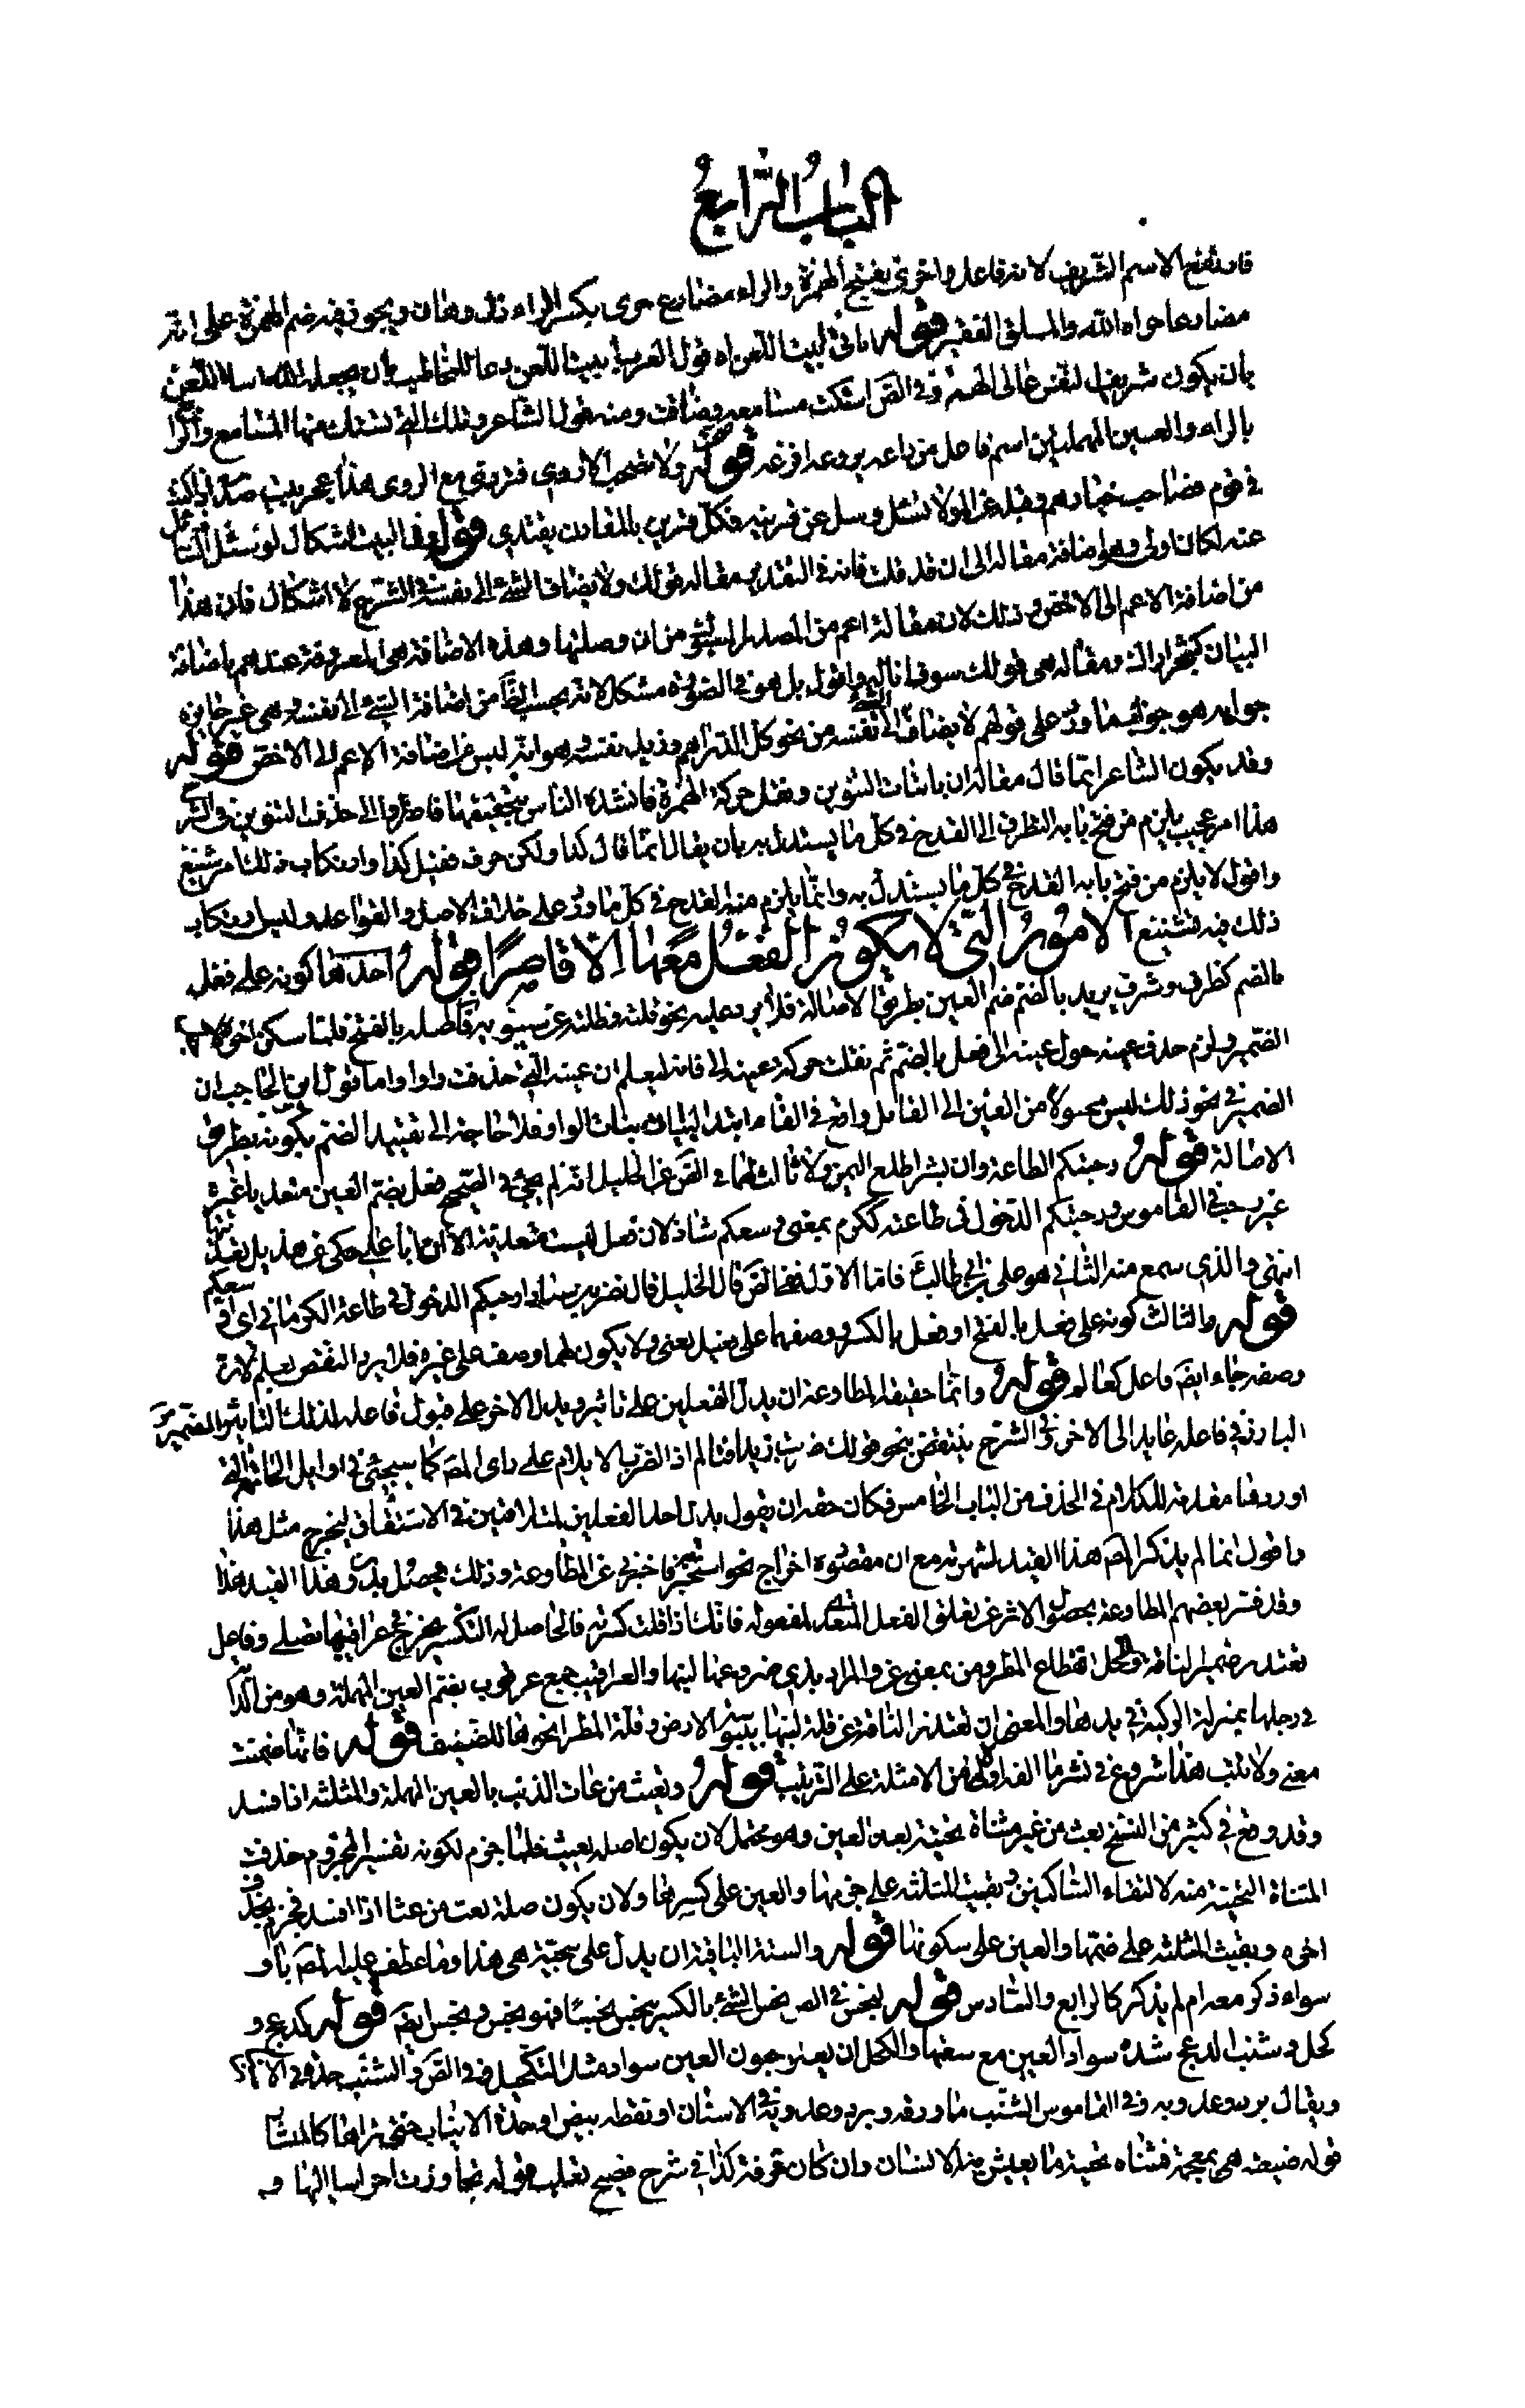 الباب الرابع
فاعل تفتح الاسم الشريف لانه فاعل واخرى بفتح الهمزة والراء مضارع حرى بكسر الراء ذل وهان ويجوز فيه ضم الهمزة على انه
مضارع اخراه الله والمسلق الفقير قوله اماتى ابيت اللعن اه قول العرب ابيت اللعن دعا للمخاطب بأن يجعله الله سالما اللعن
بان يكون شريف النفس عالى الهمة وفى القص استكت مسامعه وضاقت ومنه قول الشاعر وتلك التى تستك منها المسامع
بالراء والعين المهملتين اسم فاعل من راعه يروعه افزعه قوله ولا تصحب الاردى فتردى مع الردى هذا عجز بيت صدره اذا كنت
فى قوم فصاحب خيارهم وقبله عن المرء لا تسئل وسل عن قرينه فكل قرين بالمقارن يقتدى قوله وفى البيت اشكال لو سئل
عنه لكان اولى وهو اضافة مقالة الى ان قد قلت فانه فى التقدير مقالة قولك ولا يضاف الشئ الى نفسه فى الشرح لا اشكال فان هذا
من اضافة الاعم الى الاخص وذلك لان مقالة اعم من المصدر من ان وصلتها وهذه الاضافة هى المعروفة عندهم باضافة
البيان كشجر اراك ومقاله هى قولك سوف اناله واقول بل هو فى الضرورة مشكل لانه بحسب الظ من اضافة الشئ الى نفسه وهى غير جايزة
جوابه هو جوابهم عما ورد على قولهم لا يضاف الشئ الى نفسه من نحو كل الدراهم وزيد نفسه وهو انه ليس من اضافة الاعم الى الاخص قوله
وقد يكون الشاعر انما قال مقالة ان باثبات التنوين ونقل حركة الهمزة فانشده الناس بتحقيقها فاضطروا الى حذف التنوين فى الشرح
هذا امر عجيب يلزم من فتح بابه التطرق الى القدح فى كل ما يستدل به بان يقال انما قال كذا ولكن حرف فقيل كذا وارتكاب ذلك امر شنيع
واقول لا يلزم من فتح بابه القدح فى كل ما يستدل به وانما يلزم منه القدح فى كل ما ورد على خلاف الاصل والقواعد وليس ارتكاب
ذلك فيه تشنيع الامور التى لا يكون الفعل معها الا قاصرا قوله احدها كونه على فعل
بالضم كظرف وشرف يريد بالضم ضم العين بطريق الاصالة فلا يرد عليه نحو قلته وطلته عن سيبويه فاصله بالفتح فلما سكن اخره
الضمير ولزم حذف عينه حول عينه الى فعل بالضم ثم نقلت حركة عينه الى فائه ليعلم ان عينه التى حذفت واوا واما قول ابن الحاجب ان
الضمير فى نحو ذلك ليس محولا من العين الى الفا بل واقع فى الفاء ابتداء لبيان بنات الواو فلا حاجة الى تقييد الضم بكونه بطريق
الاصالة قوله رحبتكم الطاعة وان بشرا طلع اليمن ولا ثالث لهما فى القص عن الخليل انه لم يجئ فى الصحيح فعل بضم العين متعديا غيره
غير رحب فى القاموس ورحبتكم الدخول فى طاعته ككرم بمعنى وسعكم شاذ لان فعل ليست متعدية الا ان ابا على حكى عن هذيل تعديتها
انتهى والذى سمع منه الثانى هو على بن ابى طالب فاما الاول ففى القص قال الخليل قال نصر بن سيار ارحبكم الدخول فى طاعة الكرمانى اى وسعكم
قوله والثالث كونه على فعل بالفتح او فعل بالكسر ووصفهما على فعيل يعنى ولا يكون لهما وصف على غيره فلا يرد النقض بعلم لان
وصفه جاء ايضا فاعل كعالم قوله وانما حقيقة المطاوعة ان يدل الفعلين على تاثير ويدل الاخر على قبول فاعله لذلك التاثير الضمير
البارز فى فاعله عايد الى الاخر فى الشرح ينتقض بنحو قولك ضربت زيدا فتالم اذ الضرب لا يلزم على راى المص كما سيجئ فى اوايل الخاتمة التى
اوردها مقدمة للكلام فى الحذف من الباب الخامس فكان حقه ان يقول يدل احد الفعلين المتلاقيين فى الاشتقاق ليخرج مثل هذا
واقول انما لم يذكر المص هذا القيد لشهرته مع ان مقصوده اخراج نحو استخبرته فاخبرنى عن المطاوعة وذلك يحصل بدون هذا القيد
وقد فسر بعضهم المطاوعة بحصول الاثر عن تعلق الفعل المتعدى بمفعوله فانك اذا قلت كسرته فالحاصل له التكسر يجرح فى عراقيبها نصلى وفاعل
تعتذر ضمير الناقة والمحل انقطاع المطر ومن بمعنى عن والمراد بذى ضروعها لبنها والعراقيب جمع عرقوب بضم العين المهملة وهو من الدابة
فى رجلها بمنزلة الركبة فى يدها والمعنى ان تعتذر الناقة عن قلة لبنها بيبوسة الارض وقلة المطر انحرها للضيف قوله فانما ضمنت
معنى ولا تثب هذا شروع فى نشر ما لفه اولا من الامثلة على الترتيب قوله وتعث من عاث الذئب بالعين المهملة والمثلثة اذا افسد
وقد وقع فى كثير من النسخ يعث من غير مثناة تحتية بعد العين وهو محتمل لان يكون اصله يعيث فلما جزم لكونه تفسير المجزوم حذفت
المثناة التحتية منه لالتقاء الساكنين وبقيت المثلثة على جزمها والعين على كسرها ولان يكون صلة تعث من عثا اذا افسد فجزم بحذف
اخره وبقيت المثلثة على ضمتها والعين على سكونها قوله والستة الباقية ان يدل على سجية هى هذا وما عطف عليه المص باو
سواء ذكر معه ام لم يذكر كالرابع والسادس قوله لنجس فى الص نجس الشئ بالكسر ينجس نجسا فهو نجس ونجس ايضا قوله كدعج و
كحل وشنب الدعج شدة سواد العين مع سعتها والكحل ان يعلو جفون العين سواد مثل التكحيل وفى القص والشنب حدة فى الاسنان
ويقال برد وعذوبة وفى القاموس الشنب ماء ورقة وبرد وعذوبة فى الاسنان او نقطة بيض او حدة الانياب حتى تراها كالمنشار
قوله ضيعة هى بمعجمة فمثناة تحتية ما يعيش منه الانسان وان كان حرفة كذا فى شرح فصيح ثعلب قوله تجاوزت احراسا اليها